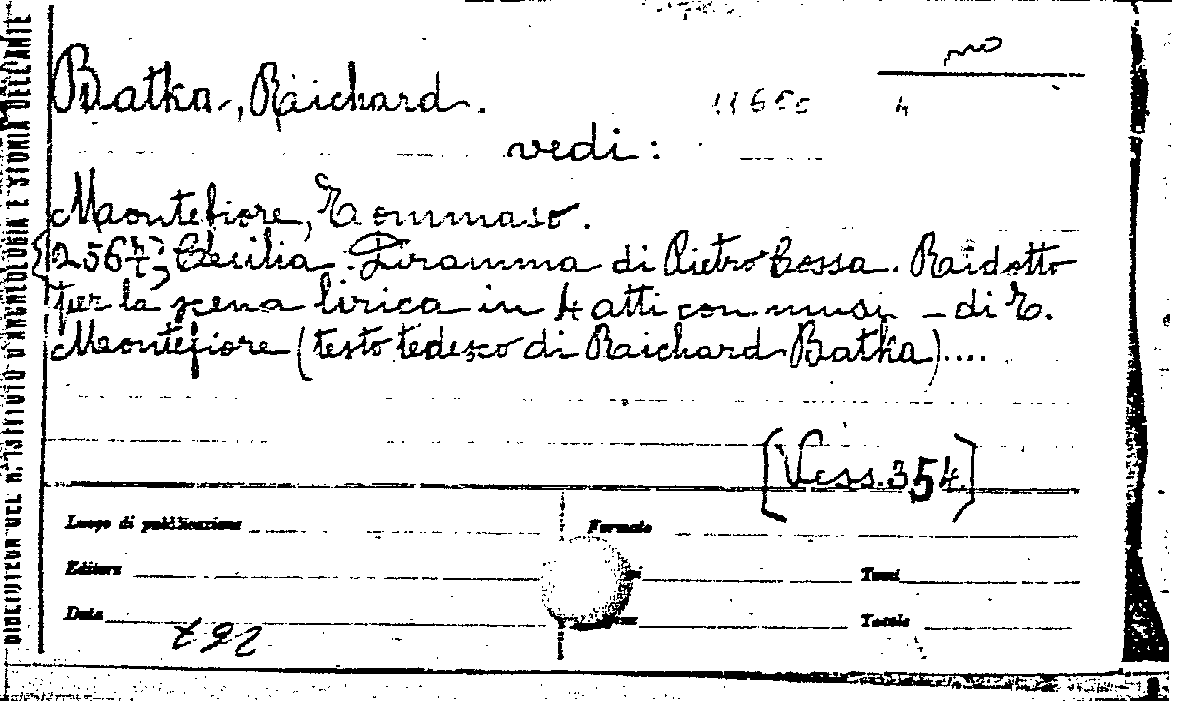 BIBLIOTECA DEL R. ISTITUTO D'ARCHEOLOGIA E STORIA DELL'ARTE
no
Batka, Raichard.
11650 4
vedi:
Montefiore, Tommaso.
2567, Cecilia. Dramma di Pietro Cossa. Raidotto
per la scena lirica in 4 atti con musi - di T.
Montefiore (testo tedesco di Raichard Batka)....
[Vess. 354]
Luogo di pubblicazione Formato
Editore Tomi
Data Tavole